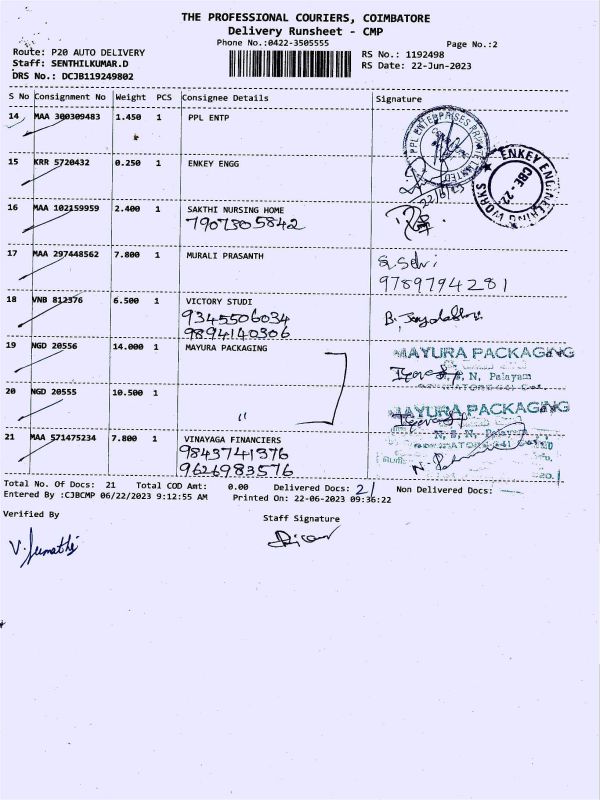 THE PROFESSIONAL COURIERS, COIMBATORE
Delivery Runsheet - CMP
Phone No.:0422-3505555 Page No.:2
Route: P20 AUTO DELIVERY RS No.: 1192498
Staff: SENTHILKUMAR.D RS Date: 22-Jun-2023
DRS No.: DCJB119249802
S No Consignment No Weight PCS Consignee Details Signature
14 MAA 300309483 1.450 1 PPL ENTP
PPL ENTERPRISES PRIVATE LIMITED
22/6/23
15 KRR 5720432 0.250 1 ENKEY ENGG
ENKEY ENGINEERING WORKS
CBE - 22
16 MAA 102159959 2.400 1 SAKTHI NURSING HOME
7907305842
17 MAA 297448562 7.800 1 MURALI PRASANTH
S. Selvi
9789794281
18 VNB 812376 6.500 1 VICTORY STUDI
9345506034
9894140306
19 NGD 20556 14.000 1 MAYURA PACKAGING
MAYURA PACKAGING
N, Palayam
20 NGD 20555 10.500 1
"
MAYURA PACKAGING
21 MAA 571475234 7.800 1 VINAYAGA FINANCIERS
9843741376
9626983576
Total No. Of Docs: 21 Total COD Amt: 0.00 Delivered Docs: 21 Non Delivered Docs:
Entered By :CJBCMP 06/22/2023 9:12:55 AM Printed On: 22-06-2023 09:36:22
Verified By Staff Signature
V. Sumathi